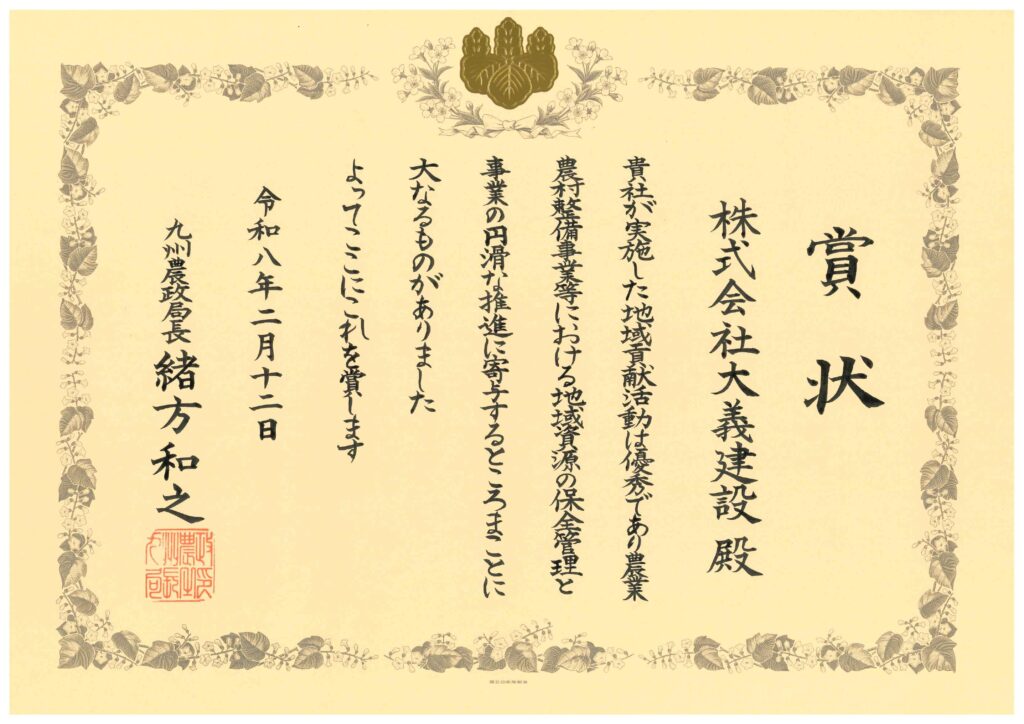 賞状
株式会社大義建設殿
貴社が実施した地域貢献活動は優秀であり農業
農村整備事業等における地域資源の保全管理と
事業の円滑な推進に寄与するところまことに
大なるものがありました
よってここにこれを賞します
令和八年二月十二日
九州農政局長 緒方和之